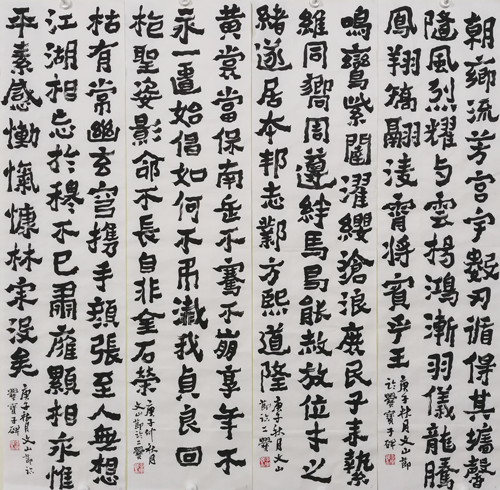 朝鄉流芳宮宇數刃循得其墻馨
隨風烈耀与雲揚鴻漸羽儀龍騰
鳳翔矯翮淩霄將賓乎王
庚子秋月文山節
於爨寶子碑
鳴鸞紫闥濯纓滄浪庶民子来縶
維同嚮周遵絆馬曷能赦放位才之
緒遂居本邦志鄴方熙道隆
庚子秋月文山
節臨爨
黄裳當保南岳不騫不崩享年不
永一匱始倡如何不弔殲我貞良回
抱聖姿影命不長自非金石榮
庚子仲秋月
文山節於二爨
枯有常幽玄穹携手顏張至人無想
江湖相忘於穆不已肅雍顯相永惟
平素感慟愾慷林宗没矣
庚子秋月文山節臨
爨寶子碑